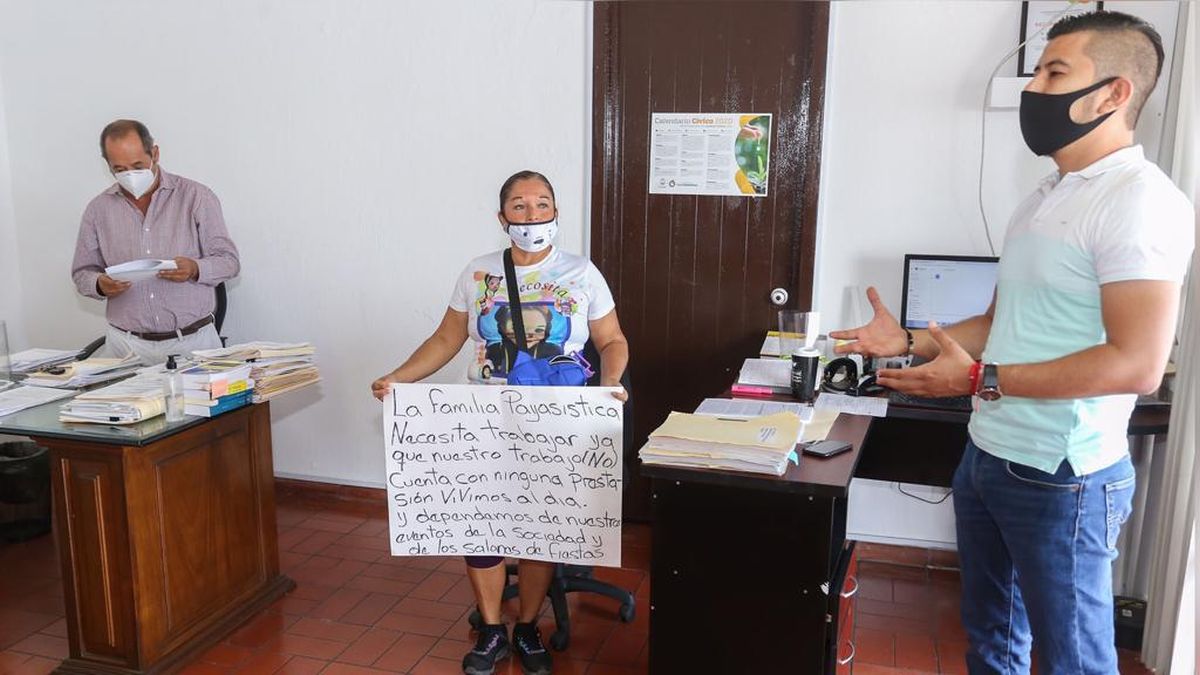 Calendario Cívico 2020
ecosita
La Familia Payasistica
Necesita trabajar ya
que nuestro trabajo (No)
Cuenta con ninguna Presta-
sión Vivimos al día.
y dependemos de nuestros
eventos de la sociedad y
de los salones de fiestas